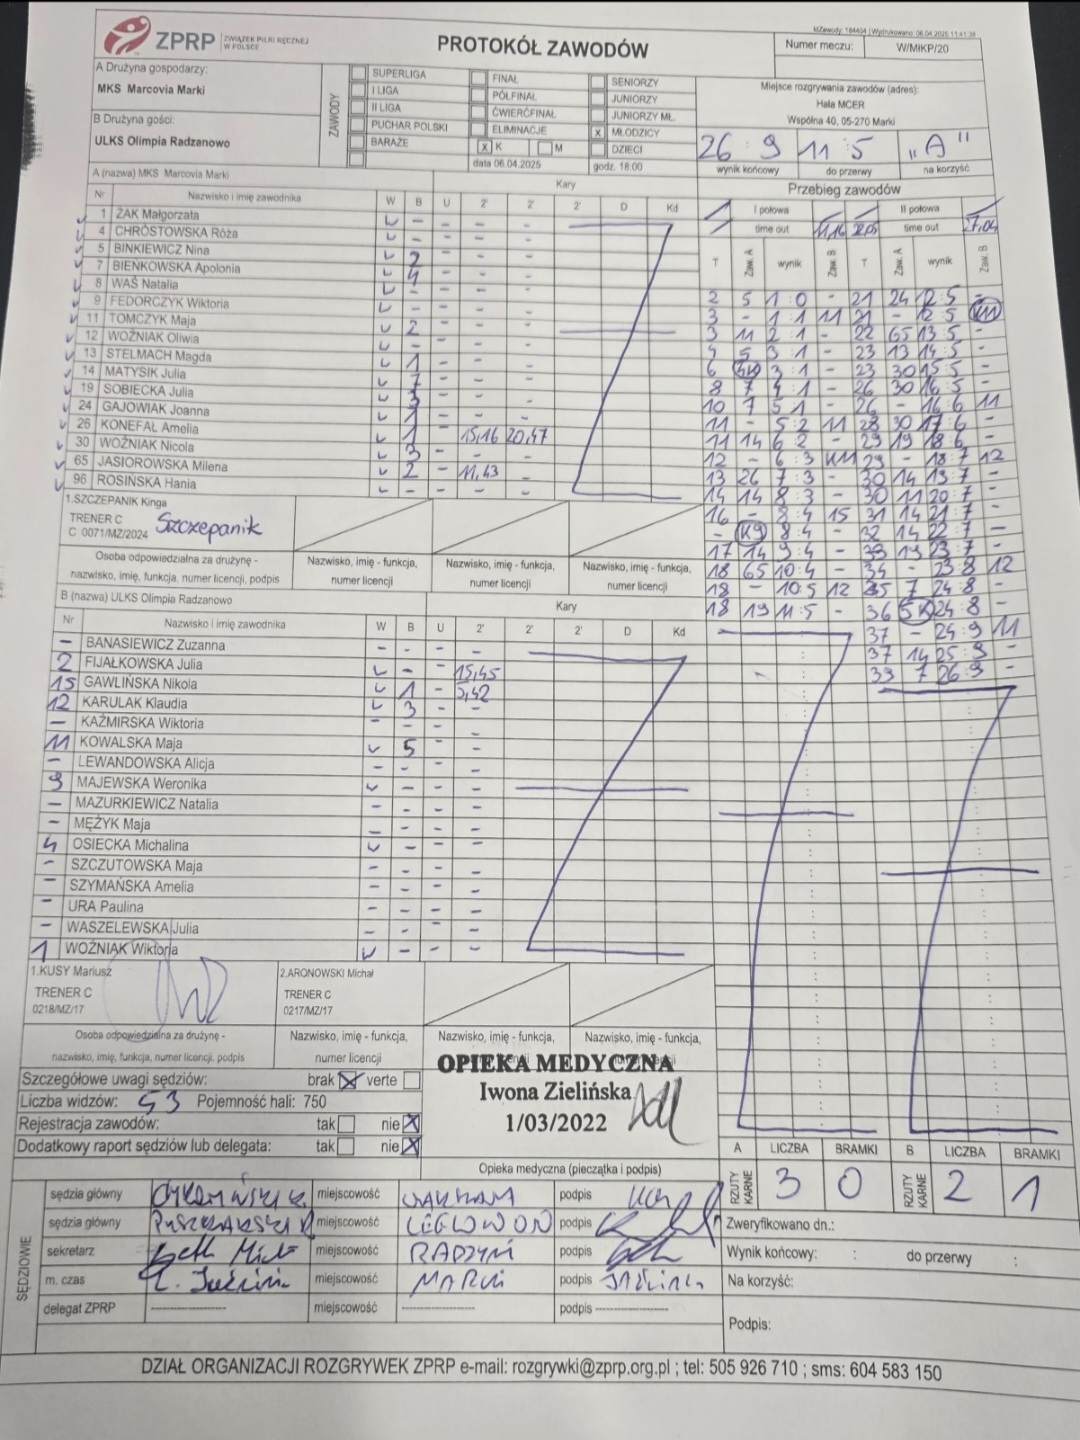 MZawody: 184404 | Wydrukowano: 06.04.2025 11:41:38
ZPRP ZWIĄZEK PIŁKI RĘCZNEJ W POLSCE
PROTOKÓŁ ZAWODÓW
Numer meczu: W/MłKP/20
A Drużyna gospodarzy:
MKS Marcovia Marki
B Drużyna gości:
ULKS Olimpia Radzanowo
ZAWODY
SUPERLIGA
I LIGA
II LIGA
PUCHAR POLSKI
BARAŻE
FINAŁ
PÓŁFINAŁ
ĆWIERĆFINAŁ
ELIMINACJE
x K M
SENIORZY
JUNIORZY
JUNIORZY MŁ.
x MŁODZICY
DZIECI
data 06.04.2025 godz. 18:00
Miejsce rozgrywania zawodów (adres):
Hala MCER
Wspólna 40, 05-270 Marki
26 : 9 11 : 5 "A"
wynik końcowy do przerwy na korzyść
A (nazwa) MKS Marcovia Marki
Kary
Nr Nazwisko i imię zawodnika W B U 2' 2' 2' D Kd
1 ŻAK Małgorzata - -
4 CHRÓSTOWSKA Róża - -
5 BINKIEWICZ Nina 2 - -
7 BIEŃKOWSKA Apolonia 4 - -
8 WAŚ Natalia - - -
9 FEDORCZYK Wiktoria - - -
11 TOMCZYK Maja 2 - -
12 WOŹNIAK Oliwia - - -
13 STELMACH Magda 1 - -
14 MATYSIK Julia 7 - -
19 SOBIECKA Julia 3 - -
24 GAJOWIAK Joanna 1 - -
26 KONEFAŁ Amelia 1 - 15,16 20,47
30 WOŹNIAK Nicola 3 - -
65 JASIOROWSKA Milena 2 - 11,43 -
96 ROSIŃSKA Hania - - - -
1.SZCZEPANIK Kinga
TRENER C
C 0071/MZ/2024 Szczepanik
Osoba odpowiedzialna za drużynę - nazwisko, imię, funkcja, numer licencji, podpis
Nazwisko, imię - funkcja, numer licencji
Nazwisko, imię - funkcja, numer licencji
Nazwisko, imię - funkcja, numer licencji
B (nazwa) ULKS Olimpia Radzanowo
Kary
Nr Nazwisko i imię zawodnika W B U 2' 2' 2' D Kd
- BANASIEWICZ Zuzanna - - - -
2 FIJAŁKOWSKA Julia - - 15,45
15 GAWLIŃSKA Nikola 1 - 5,42
12 KARULAK Klaudia 3 - -
- KAŹMIRSKA Wiktoria - - - -
11 KOWALSKA Maja 5 - -
- LEWANDOWSKA Alicja - - - -
9 MAJEWSKA Weronika - - -
- MAZURKIEWICZ Natalia - - - -
- MĘŻYK Maja - - - -
4 OSIECKA Michalina - - -
- SZCZUTOWSKA Maja - - - -
- SZYMAŃSKA Amelia - - - -
- URA Paulina - - - -
- WASZELEWSKA Julia - - - -
1 WOŹNIAK Wiktoria - - -
1.KUSY Mariusz
TRENER C
0218/MZ/17
2.ARONOWSKI Michał
TRENER C
0217/MZ/17
Osoba odpowiedzialna za drużynę - nazwisko, imię, funkcja, numer licencji, podpis
Nazwisko, imię - funkcja, numer licencji
Nazwisko, imię - funkcja,
Nazwisko, imię - funkcja,
Przebieg zawodów
I połowa II połowa
time out 11,16 time out 27,04
T Zaw. A wynik Zaw. B T Zaw. A wynik Zaw. B
2 5 1:0 - 21 24 12:5 -
3 - 1:1 11 21 - 12:5 K11
3 11 2:1 - 22 65 13:5 -
4 5 3:1 - 23 13 14:5 -
6 3:1 - 23 30 15:5 -
8 7 4:1 - 26 30 16:5 -
10 7 5:1 - 26 - 16:6 11
11 - 5:2 11 28 30 17:6 -
11 14 6:2 - 29 19 18:6 -
12 - 6:3 K11 29 - 18:7 12
13 26 7:3 - 30 14 19:7 -
14 14 8:3 - 30 11 20:7 -
16 - 8:4 15 31 14 21:7 -
- K9 8:4 - 32 14 22:7 -
17 14 9:4 - 33 19 23:7 -
18 65 10:4 - 34 - 23:8 12
18 - 10:5 12 35 7 24:8 -
18 19 11:5 - 36 5K 24:8 -
37 - 24:9 11
37 14 25:9 -
39 7 26:9 -
Szczegółowe uwagi sędziów: brak x verte
Liczba widzów: 53 Pojemność hali: 750
Rejestracja zawodów: tak nie x
Dodatkowy raport sędziów lub delegata: tak nie x
OPIEKA MEDYCZNA
Iwona Zielińska
1/03/2022
Opieka medyczna (pieczątka i podpis)
A LICZBA BRAMKI B LICZBA BRAMKI
RZUTY KARNE 3 0 RZUTY KARNE 2 1
SĘDZIOWIE
sędzia główny miejscowość podpis
sędzia główny miejscowość podpis
sekretarz miejscowość RADZYŃ podpis
m. czas miejscowość MARKI podpis
delegat ZPRP ---------- miejscowość ---------- podpis ----------
Zweryfikowano dn.:
Wynik końcowy: : do przerwy :
Na korzyść:
Podpis:
DZIAŁ ORGANIZACJI ROZGRYWEK ZPRP e-mail: rozgrywki@zprp.org.pl ; tel: 505 926 710 ; sms: 604 583 150